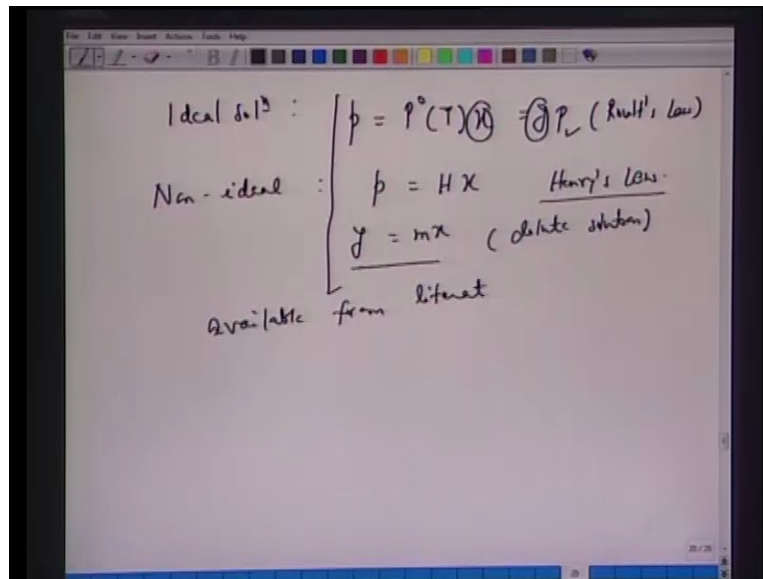 File Edit View Insert Actions Tools Help
Ideal solⁿ : p = P°(T) x = y Pₜ (Roult's Law)
Non-ideal : p = H x Henry's Law.
y = mx (dilute solution)
available from literat
20/20